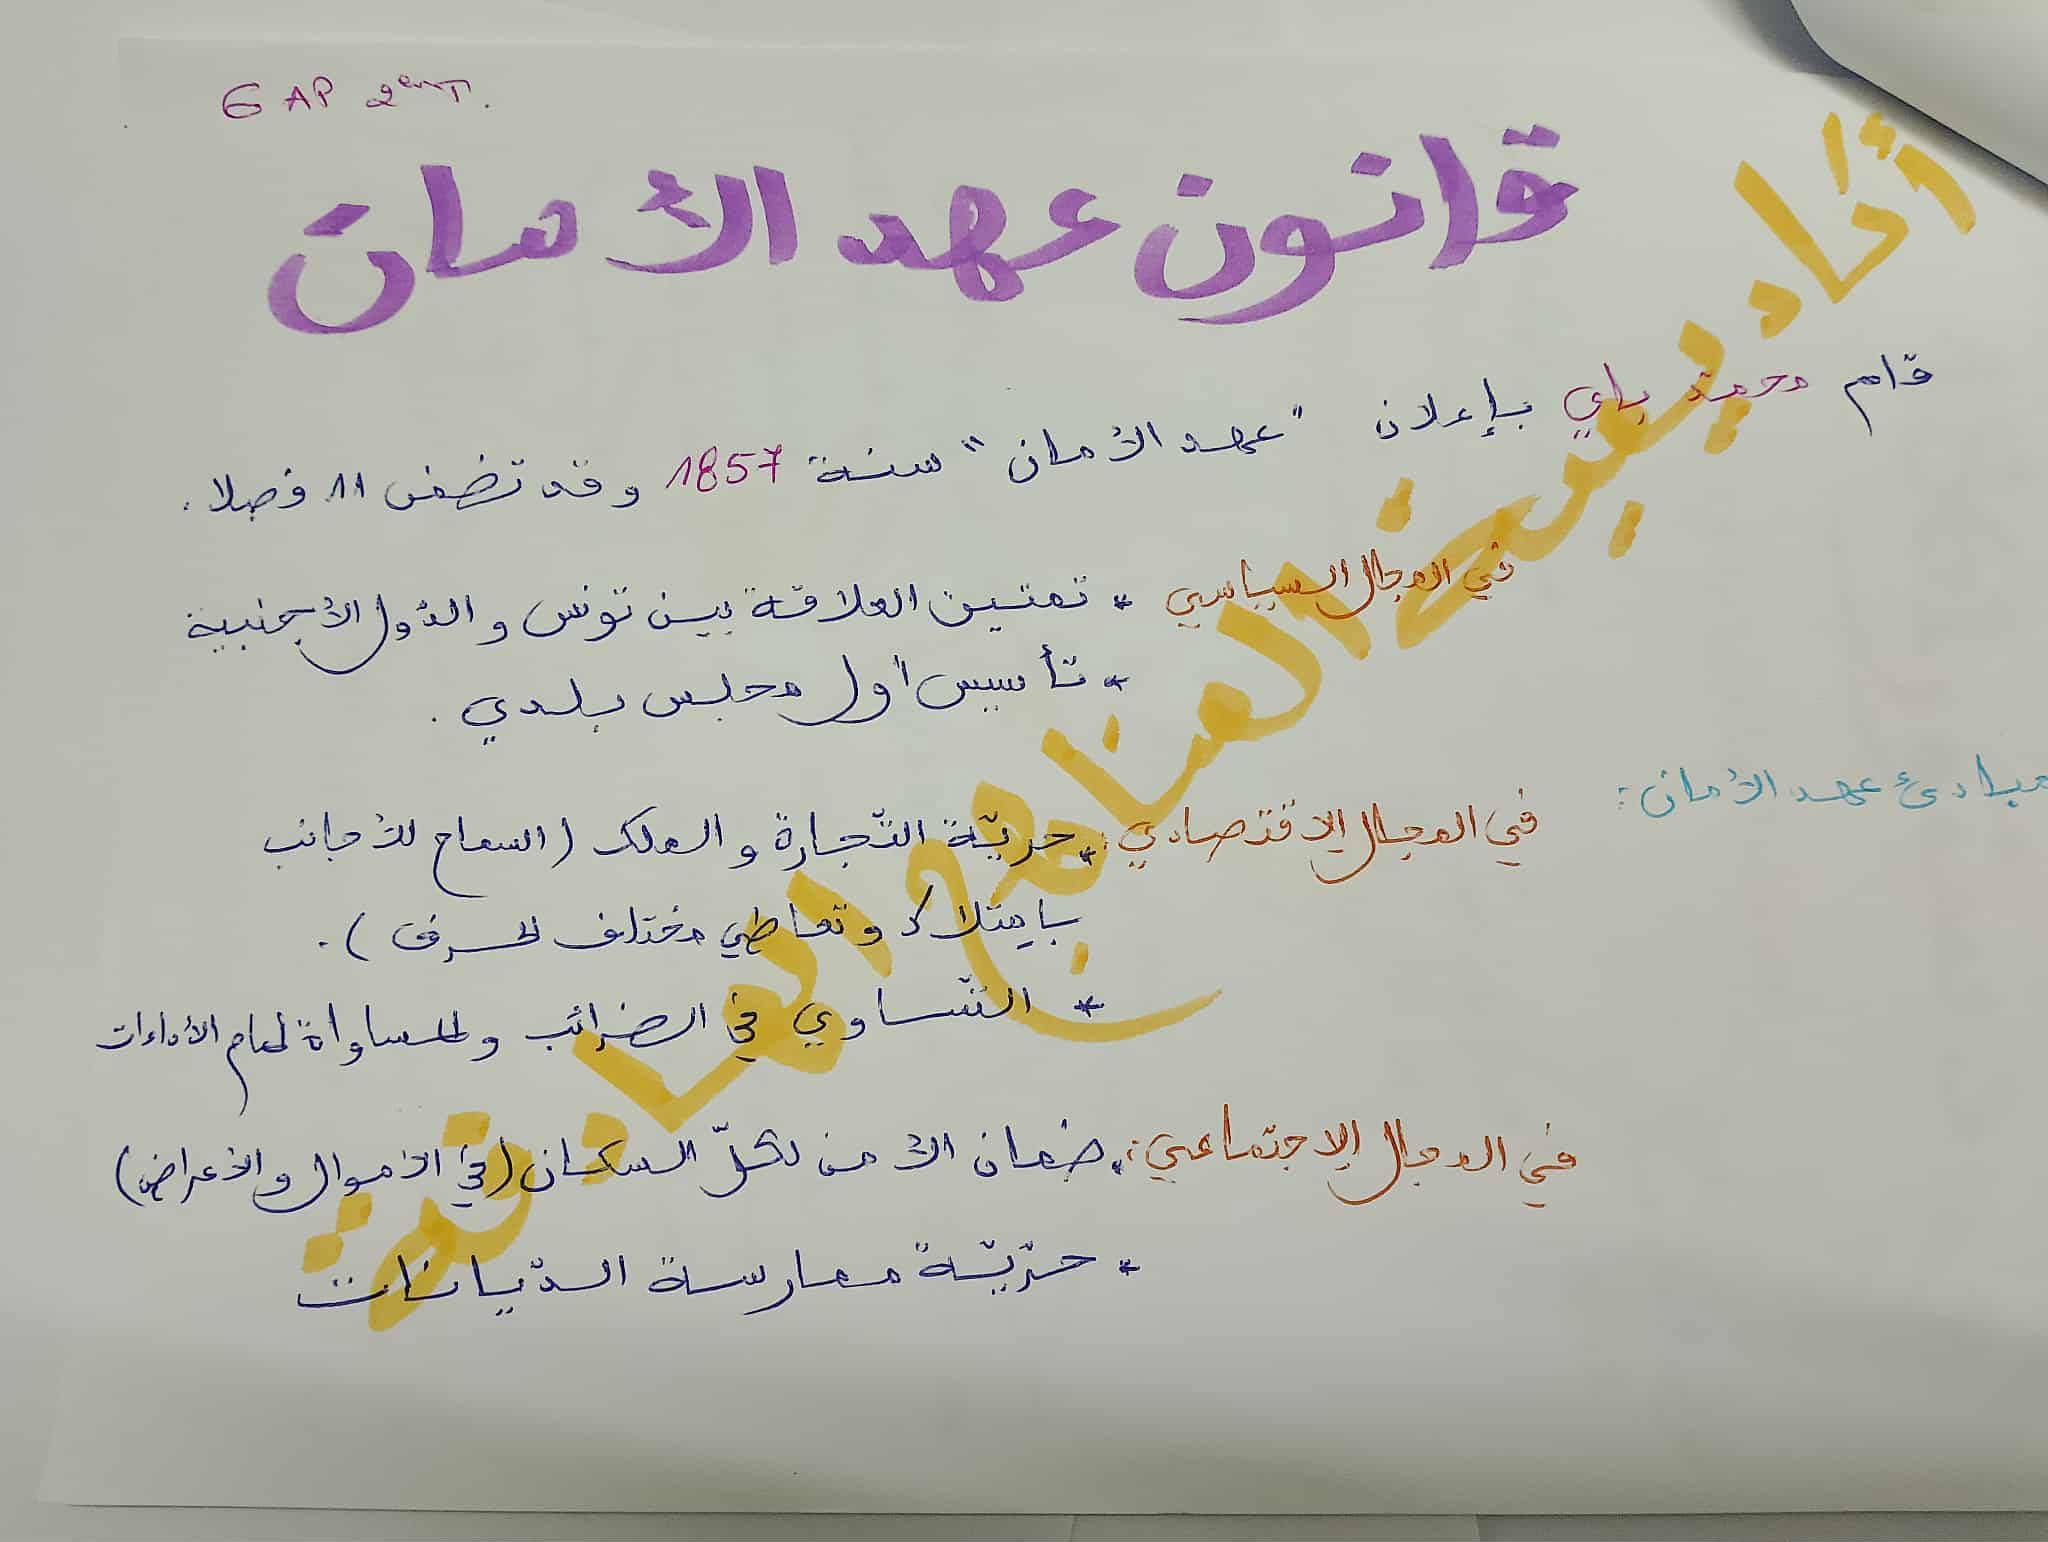 6 AP 2emT.
قانون عهد الأمان
قام محمد باي بإعلان "عهد الأمان" سنة 1857 وقد تضمن 11 فصلا.
في المجال السياسي * تمتين العلاقة بين تونس والدّول الأجنبية
* تأسيس أول مجلس بلدي.
مبادئ عهد الأمان:
في المجال الإقتصادي: * حريّة التّجارة والملك (السماح للأجانب
بامتلاك وتعاطي مختلف الحرف).
* التّساوي في الضرائب والمساواة أمام الأداءات
في المجال الإجتماعي: * ضمان الأمن لكلّ السكان (في الأموال والأعراض)
* حرّيّة ممارسة الدّيانات